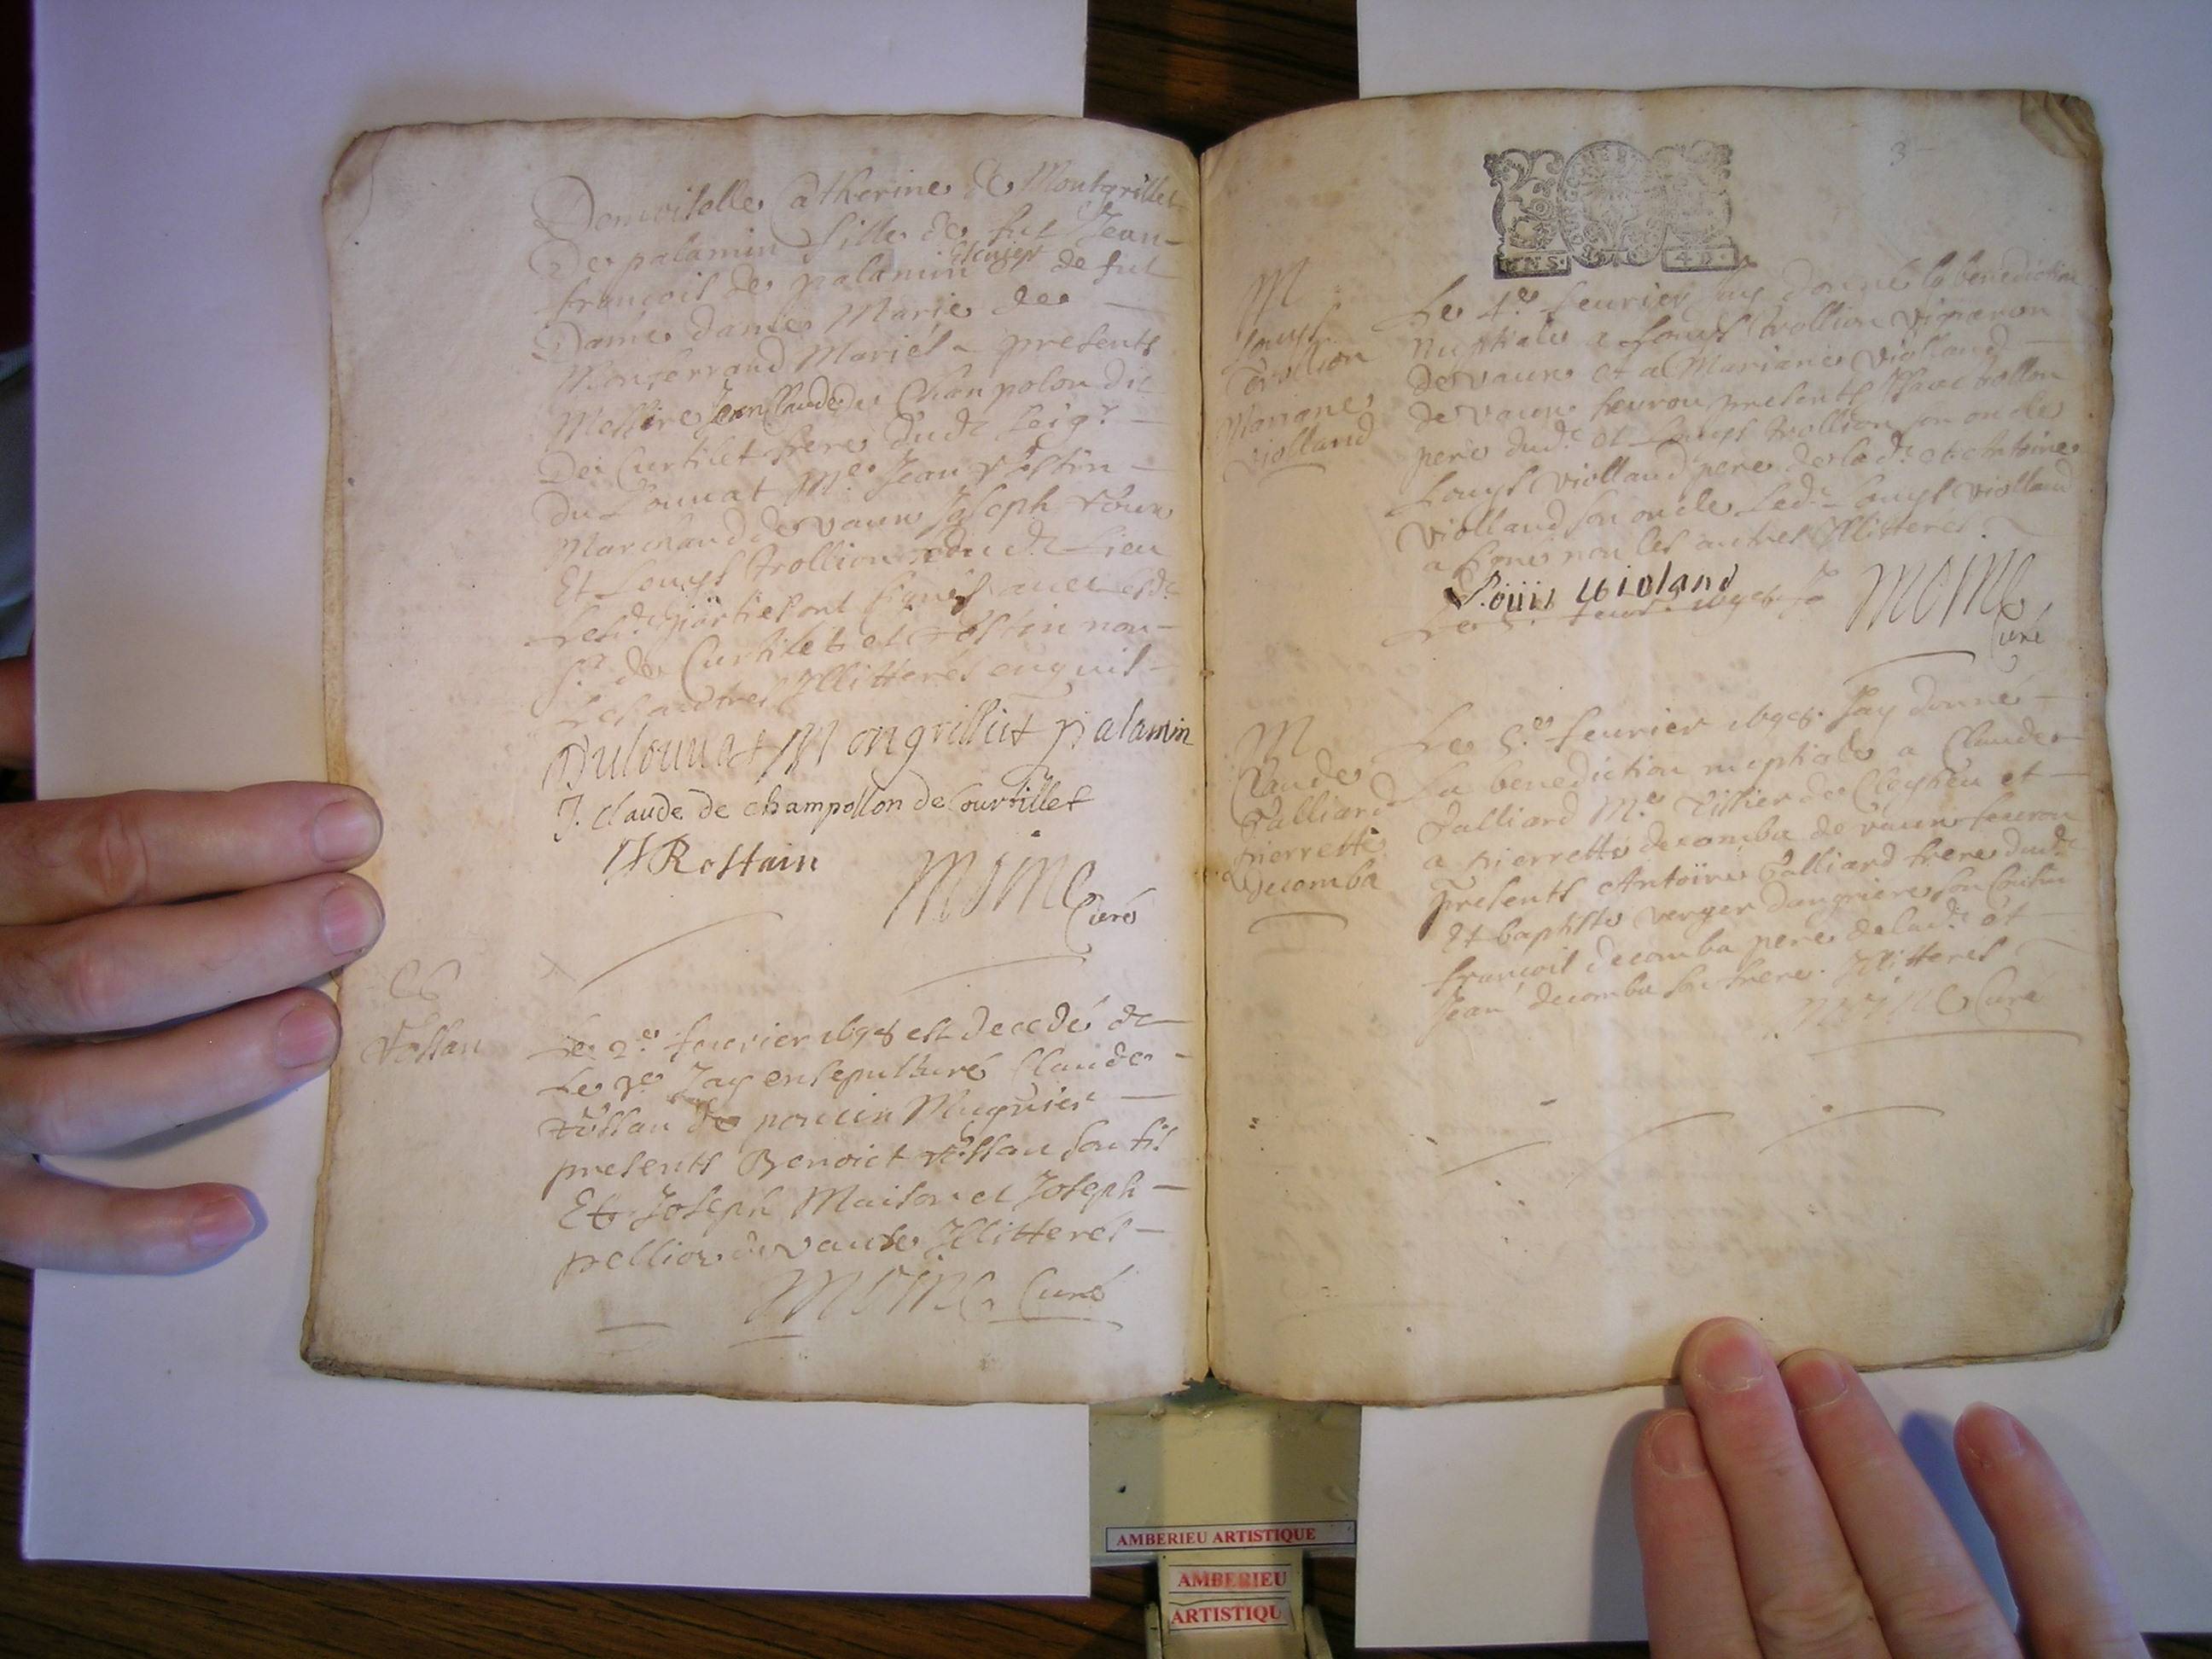 Demoiselle Catherine de Montgrillet
De palamin fille de fut Jean
françois de palamin Escuyer de fut
Dame dame Marie de
Monferrand Mariés presents
Messire Jean Claude de Champolon dit
De Curtilet frere dud.t Seig.r
Du Louuat M.e Jean
Marchand de vaux Joseph
Et Louys trollion dud.t Lieu
Lesd.t parties ont signés auec led.t
S.r de Curtilet et non
Les autres Illitteres enquis
Dulouuat Mongrilliet palamin
J. claude de champollon de Courtillet
Rostain
Moine
Curé
Le 2.e feurier 1698 est decedé et
Le 3.e Jay ensepulturé Claude
de poncin Mugnier
presents Benoict son fils
Et Joseph Maison et Joseph
pellion de vaux Illitteres
Moine Curé
3
4 D.
M
Louys
Trollion
Mariane
Violland
Le 4.e feurier Jay donné la benediction
Nuptiale a Louys trollion Vigneron
de vaux et a Mariane violland
de vaux feurou presents Isaac trollion
pere dud.t et Louys trollion son oncle
Louys violland pere de lad.t et Antoine
Violland son oncle Led.t Louys violland
a signé non les autres Illitteres
Louis violand
Moine
Curé
Le 5.e feur. 1698 Ja
M
Claude
Talliard
pierrette
Decomba
Le 5.e feurier 1698. Jay donné
La benediction nuptiale a Claude
Talliard M.e Tissier de Cleyzieu et
a pierrette decomba de vaux feurou
presents Antoine Talliard frere dud.t
Et baptiste verger dangrieres son Cousin
françois decomba pere de lad.t et
Jean decomba son frere. Illitteres
Moine Curé
AMBERIEU ARTISTIQUE
AMBERIEU
ARTISTIQU